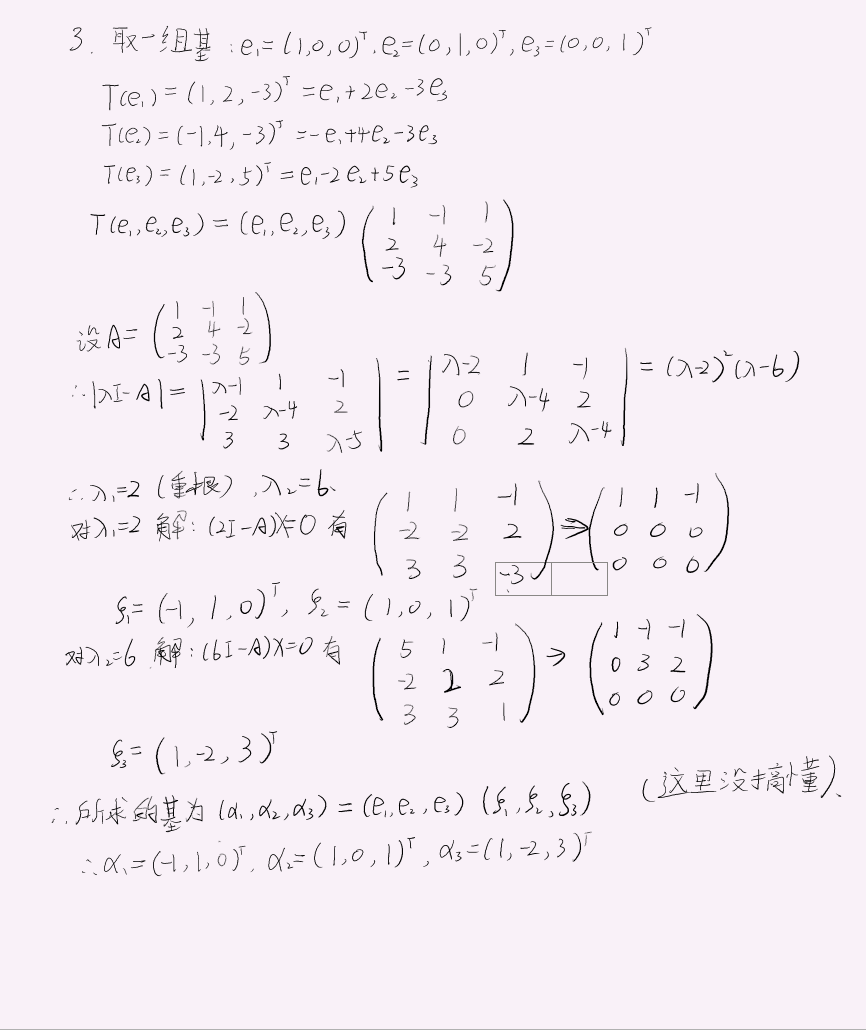 3. 取一组基: e₁=(1,0,0)ᵀ. e₂=(0,1,0)ᵀ, e₃=(0,0,1)ᵀ
T(e₁)=(1,2,-3)ᵀ=e₁+2e₂-3e₃
T(e₂)=(-1,4,-3)ᵀ=-e₁+4e₂-3e₃
T(e₃)=(1,-2,5)ᵀ=e₁-2e₂+5e₃
T(e₁,e₂,e₃)=(e₁,e₂,e₃)
1 -1 1
2 4 -2
-3 -3 5
设A=
1 -1 1
2 4 -2
-3 -3 5
∴|λI-A|=
λ-1 1 -1
-2 λ-4 2
3 3 λ-5
=
λ-2 1 -1
0 λ-4 2
0 2 λ-4
=(λ-2)²(λ-6)
∴λ₁=2 (重根), λ₂=6.
对λ₁=2 解:(2I-A)X=0 有
1 1 -1
-2 -2 2
3 3 -3
⇒
1 1 -1
0 0 0
0 0 0
ξ₁=(-1,1,0)ᵀ, ξ₂=(1,0,1)ᵀ
对λ₂=6 解:(6I-A)X=0有
5 1 -1
-2 2 2
3 3 1
→
1 -1 -1
0 3 2
0 0 0
ξ₃=(1,-2,3)ᵀ
∴所求的基为(α₁,α₂,α₃)=(e₁,e₂,e₃)(ξ₁,ξ₂,ξ₃) (这里没搞懂).
∴α₁=(-1,1,0)ᵀ, α₂=(1,0,1)ᵀ, α₃=(1,-2,3)ᵀ